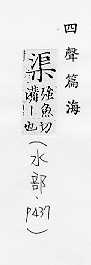 四聲篇海
渠 強魚切
溝丨也
(水部、P437)